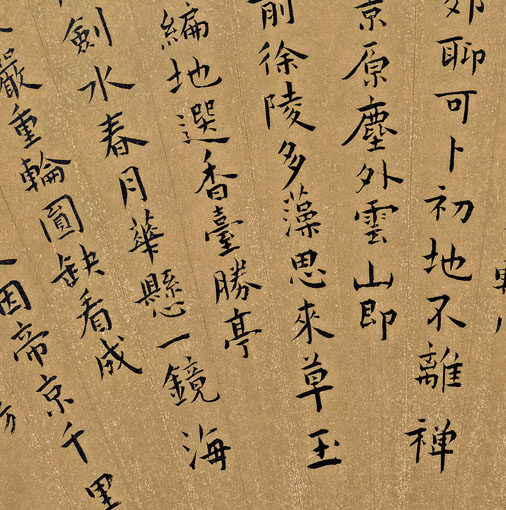 郊聊可卜初地不離禅
京原塵外雲山即
前徐陵多藻思來草玉
編地選香臺勝亭
劍水春月華懸一鏡海
嚴重輪圓缺看成
因帝京千里